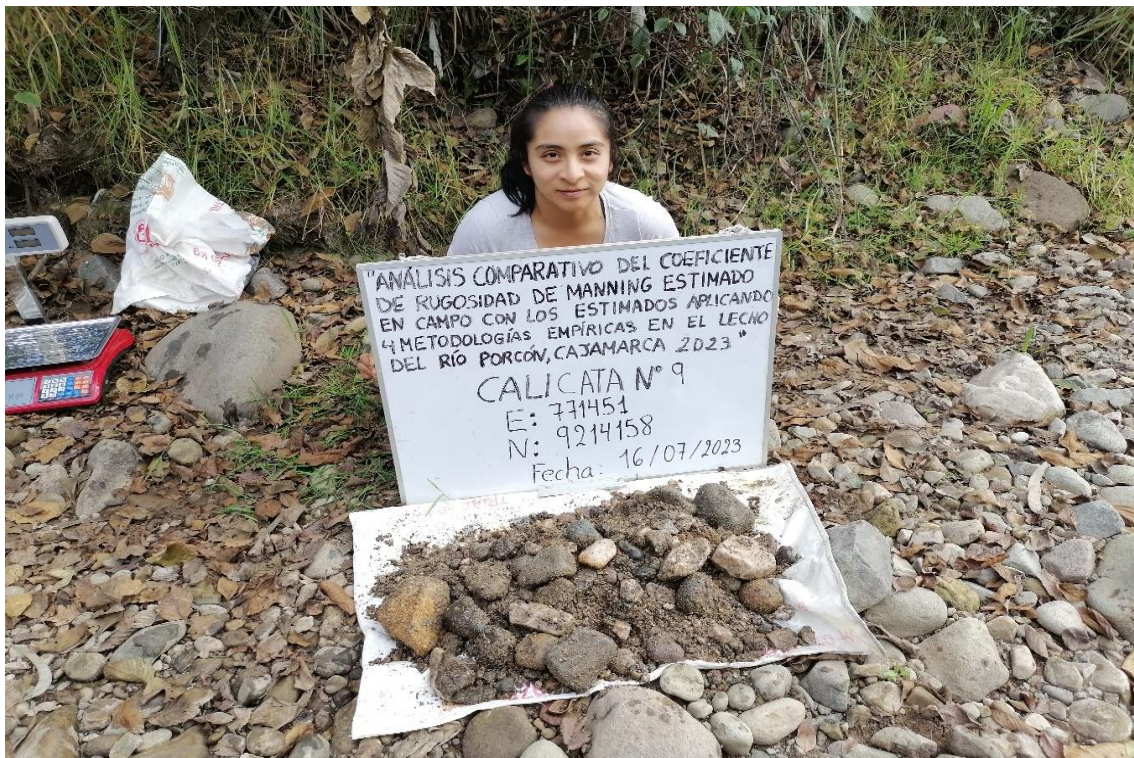 "ANÁLISIS COMPARATIVO DEL COEFICIENTE
DE RUGOSIDAD DE MANNING ESTIMADO
EN CAMPO CON LOS ESTIMADOS APLICANDO
4 METODOLOGÍAS EMPÍRICAS EN EL LECHO
DEL RÍO PORCÓN, CAJAMARCA 2023"
CALICATA N° 9
E: 771451
N: 9214158
Fecha: 16/07/2023